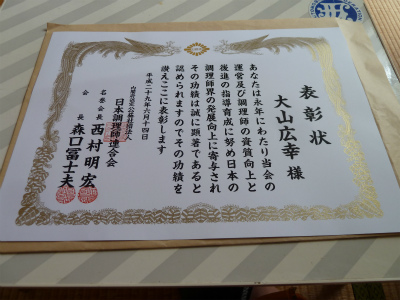 表彰状
大山広幸 様
あなたは永年にわたり当会の
運営及び調理師の資質向上と
後進の指導育成に努め日本の
調理師界の発展向上に寄与され
その功績は誠に顕著であると
認められますのでその功績を
讃えここに表彰します
平成二十九年六月十四日
内閣府認定公益社団法人
日本調理師連合会
名誉会長 西村明宏
会長 森口冨士夫